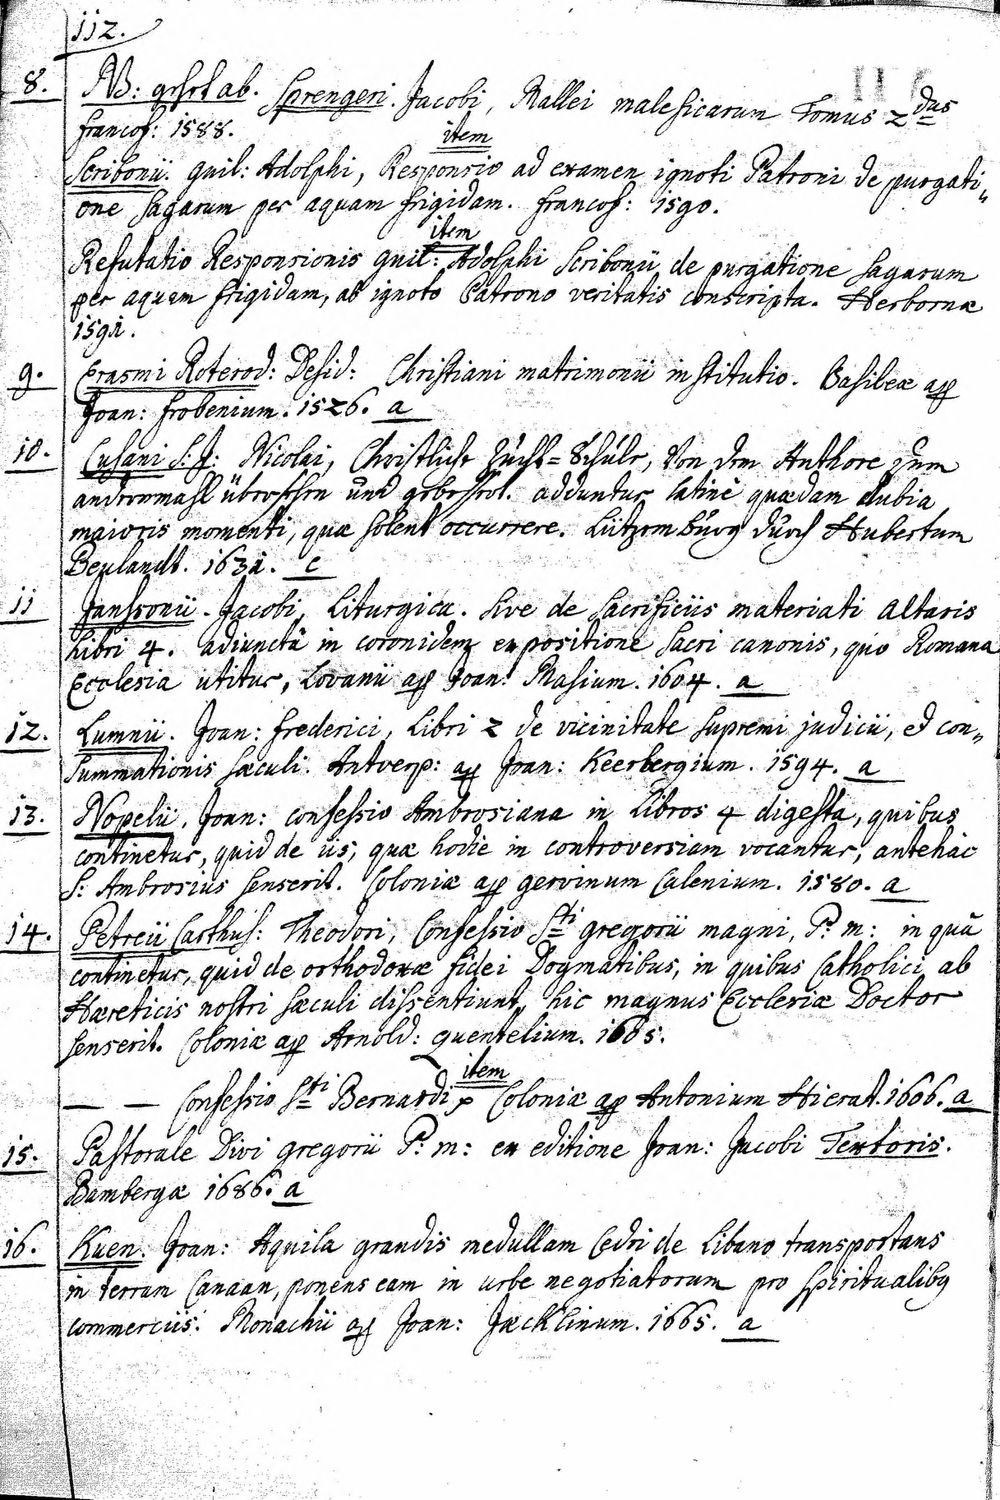 112.
116
8. NB: gehrt ab. Sprengeri. Jacobi, Mallei maleficarum Tomus 2dus
Francof: 1588.
item
Scribonii. Guil: Adolphi, Responsio ad examen ignoti Patroni de purgati„
one Sagarum per aquam frigidam. Francof: 1590.
item
Refutatio Responsionis Guil: Adolphi Scribonii de purgatione Sagarum
per aquam frigidam, ab ignoto Patrono veritatis conscripta. Herbornæ
1591.
9. Erasmi Roterod: Desid: Christiani matrimonii institutio. Basileæ ap
Joan: Frobenium. 1526. a
10. Cusani S:J: Nicolai, Christliche Zücht-Schůle, Von dem Authore zum
andernmahl übersehen ůnd gebessert. adduntur latinè quædam dubia
maioris momenti, quæ solent occurrere. Lützembůrg důrch Hubertum
Reulandt. 1631. c
11 Jansonii. Jacobi, Liturgica. Sive de Sacrificiis materiati Altaris
Libri 4. adiunctâ in coronidem expositione Sacri canonis, quo Romana
Ecclesia utitur, Lovanii ap Joan: Masium. 1604. a
12. Lumnii. Joan: Frederici, Libri 2 de vicinitate supremi judicii, et con„
summationis sæculi. Antverp: ap Joan: Keerbergium. 1594. a
13. Nopelii, Joan: confessio Ambrosiana in Libros 4 digesta, quibus
continetur, quid de iis, quæ hodie in controversiam vocantur, antehàc
S: Ambrosius senserit. Coloniæ ap Gervinum Calenium. 1580. a
14. Petreii Carthus: Theodori, Confessio Sti Gregorii magni, P. m: in quâ
continetur, quid de orthodoxæ fidei Dogmatibus, in quibus Catholici ab
Hæreticis nostri sæculi dissentiunt, hic magnus Ecclesiæ Doctor
senserit. Coloniæ ap Arnold: Quentelium. 1605.
item
— — Confessio Sti Bernardi Coloniæ ap Antonium Hierat. 1606. a
15. Pastorale Divi Gregorii P. m: ex editione Joan: Jacobi Textoris.
Bambergæ 1686. a
16. Kuen. Joan: Aquila grandis medullam Cedri de Libano transportans
in terram Canaan, ponens eam in urbe negotiatorum pro spiritualibus
commerciis. Monachii ap Joan: Jæcklinum. 1665. a